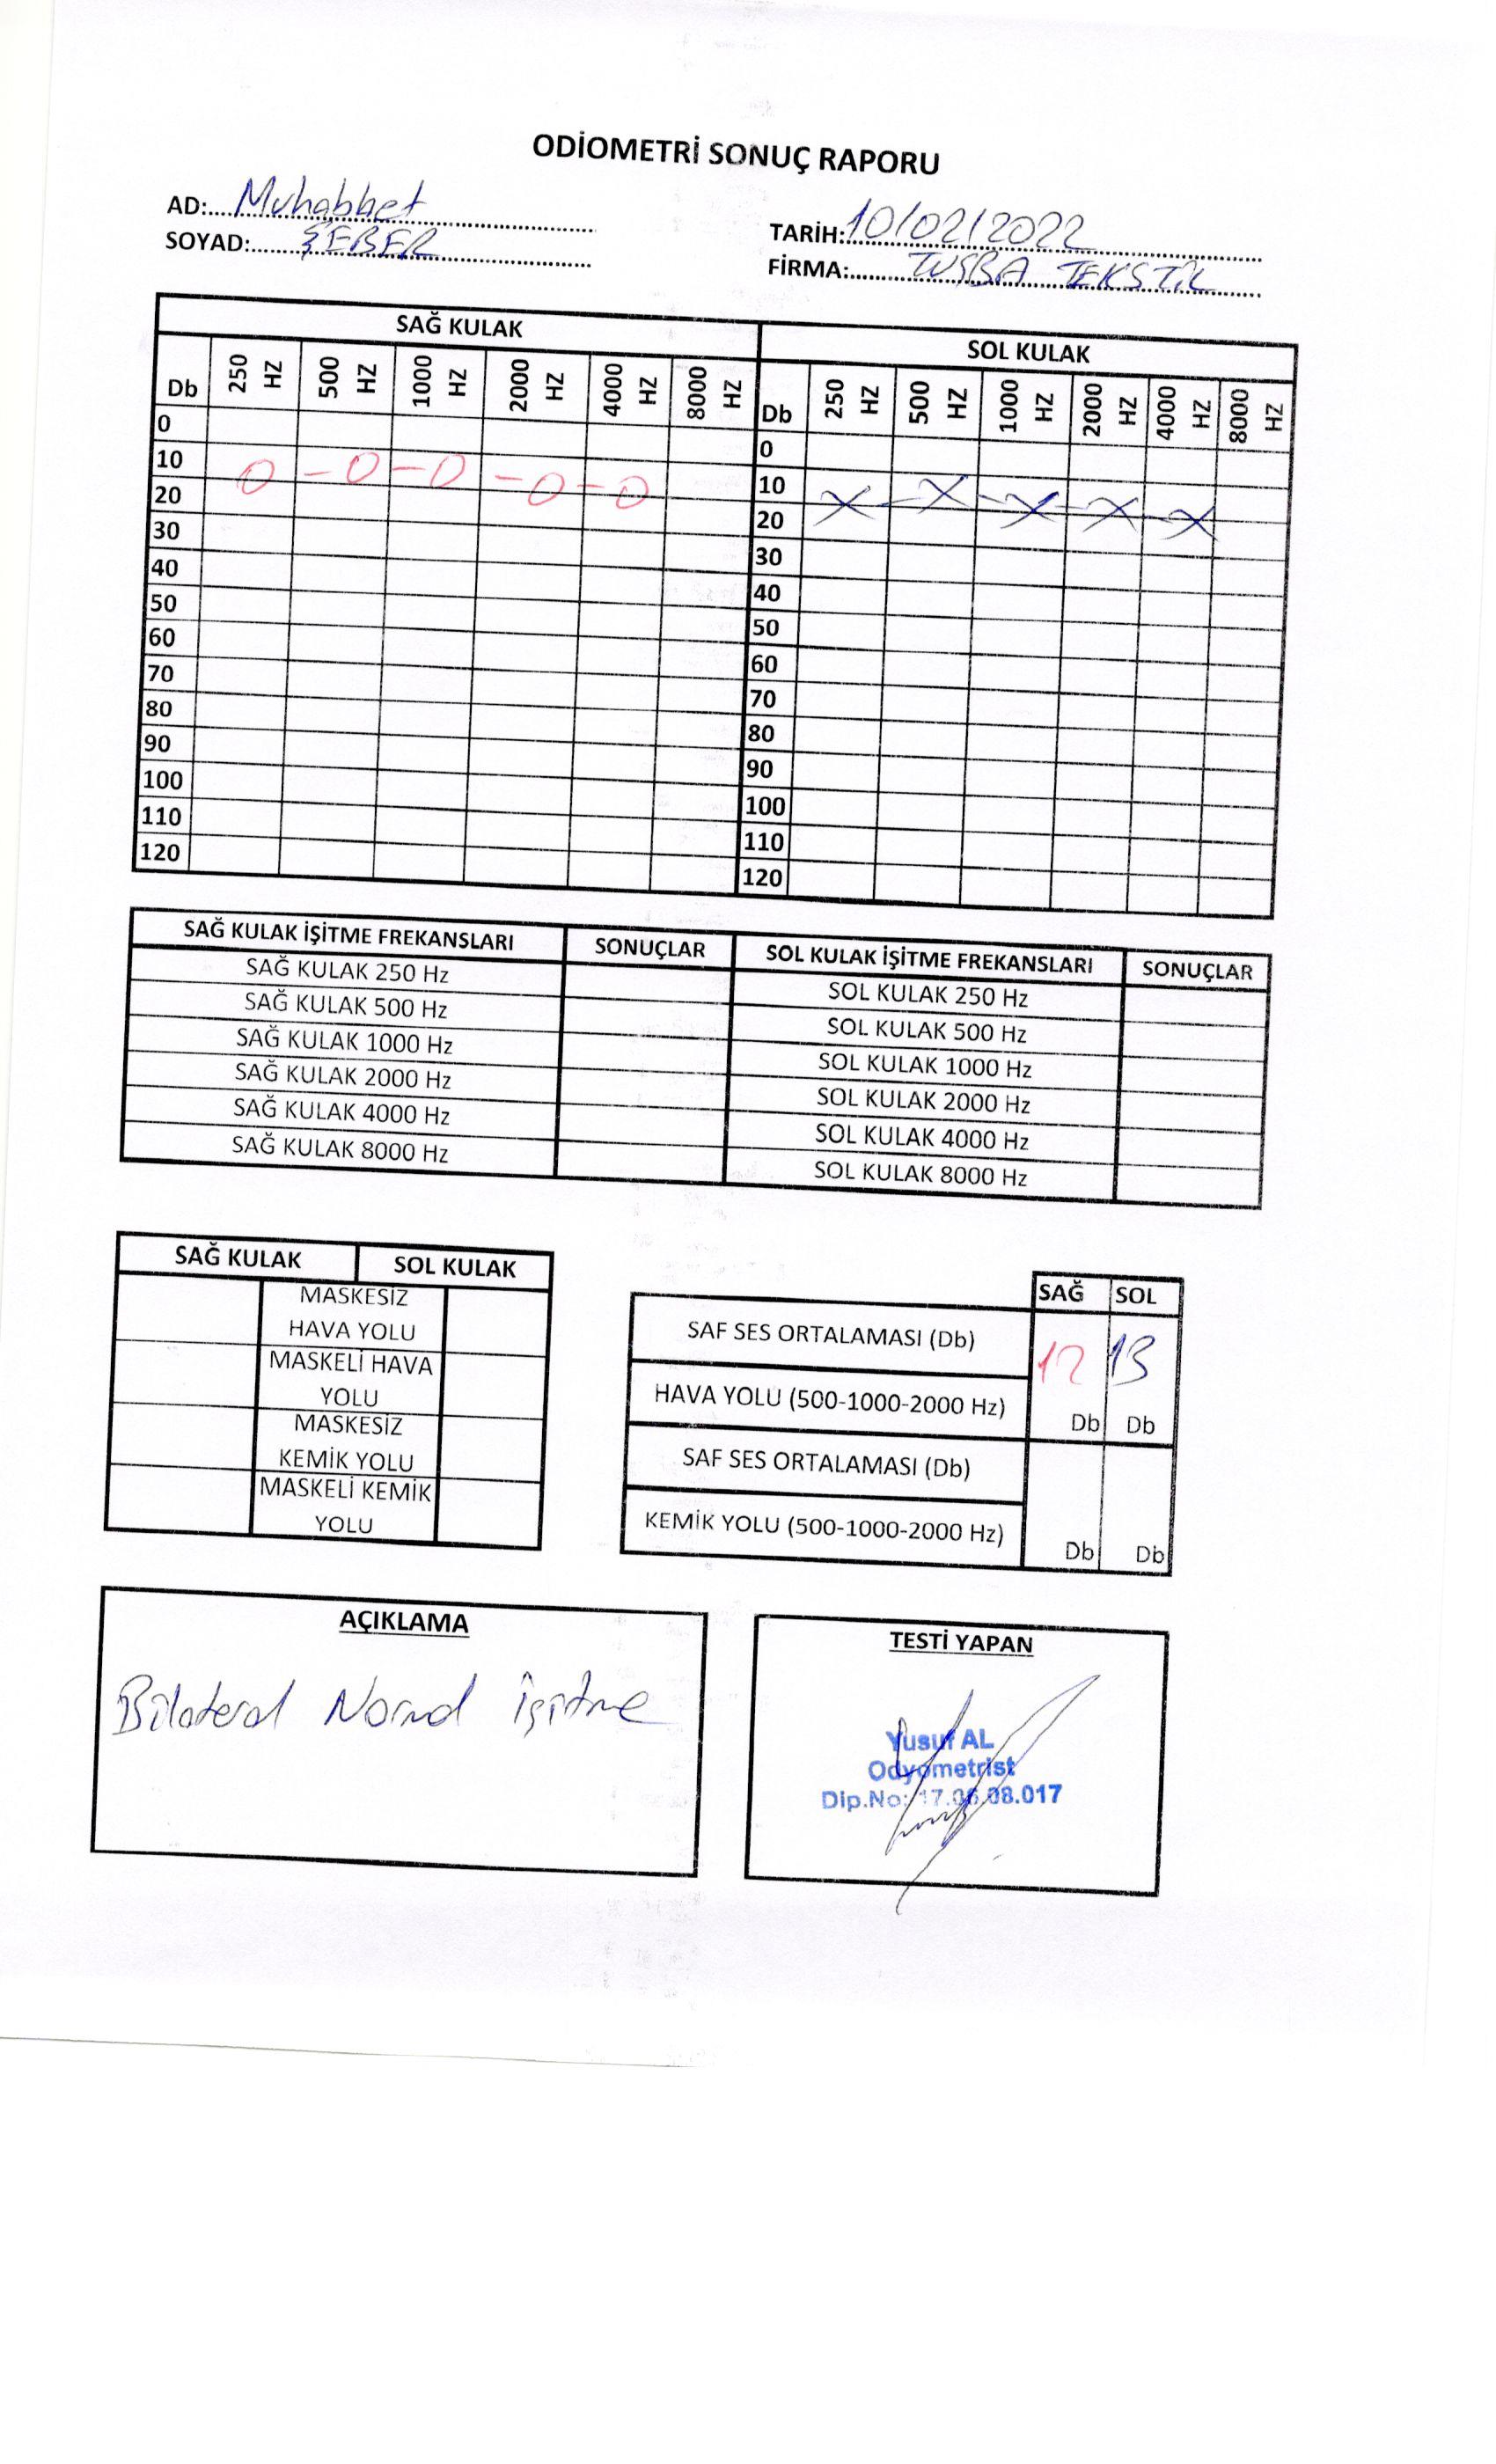 ODİOMETRİ SONUÇ RAPORU
AD: Muhabbet
SOYAD: ŞEBER
TARİH: 10/02/2022
FİRMA: TUŞBA TEKSTİL
SAĞ KULAK SOL KULAK
Db 250 HZ 500 HZ 1000 HZ 2000 HZ 4000 HZ 8000 HZ Db 250 HZ 500 HZ 1000 HZ 2000 HZ 4000 HZ 8000 HZ
0 0
10 10
20 20
30 30
40 40
50 50
60 60
70 70
80 80
90 90
100 100
110 110
120 120
SAĞ KULAK İŞİTME FREKANSLARI SONUÇLAR SOL KULAK İŞİTME FREKANSLARI SONUÇLAR
SAĞ KULAK 250 Hz SOL KULAK 250 Hz
SAĞ KULAK 500 Hz SOL KULAK 500 Hz
SAĞ KULAK 1000 Hz SOL KULAK 1000 Hz
SAĞ KULAK 2000 Hz SOL KULAK 2000 Hz
SAĞ KULAK 4000 Hz SOL KULAK 4000 Hz
SAĞ KULAK 8000 Hz SOL KULAK 8000 Hz
SAĞ KULAK SOL KULAK
MASKESİZ
HAVA YOLU
MASKELİ HAVA
YOLU
MASKESİZ
KEMİK YOLU
MASKELİ KEMİK
YOLU
SAĞ SOL
SAF SES ORTALAMASI (Db) 12 13
HAVA YOLU (500-1000-2000 Hz) Db Db
SAF SES ORTALAMASI (Db)
KEMİK YOLU (500-1000-2000 Hz) Db Db
AÇIKLAMA
Bilateral Normal İşitme
TESTİ YAPAN
Yusuf AL
Odyometrist
Dip.No: 17.06.08.017